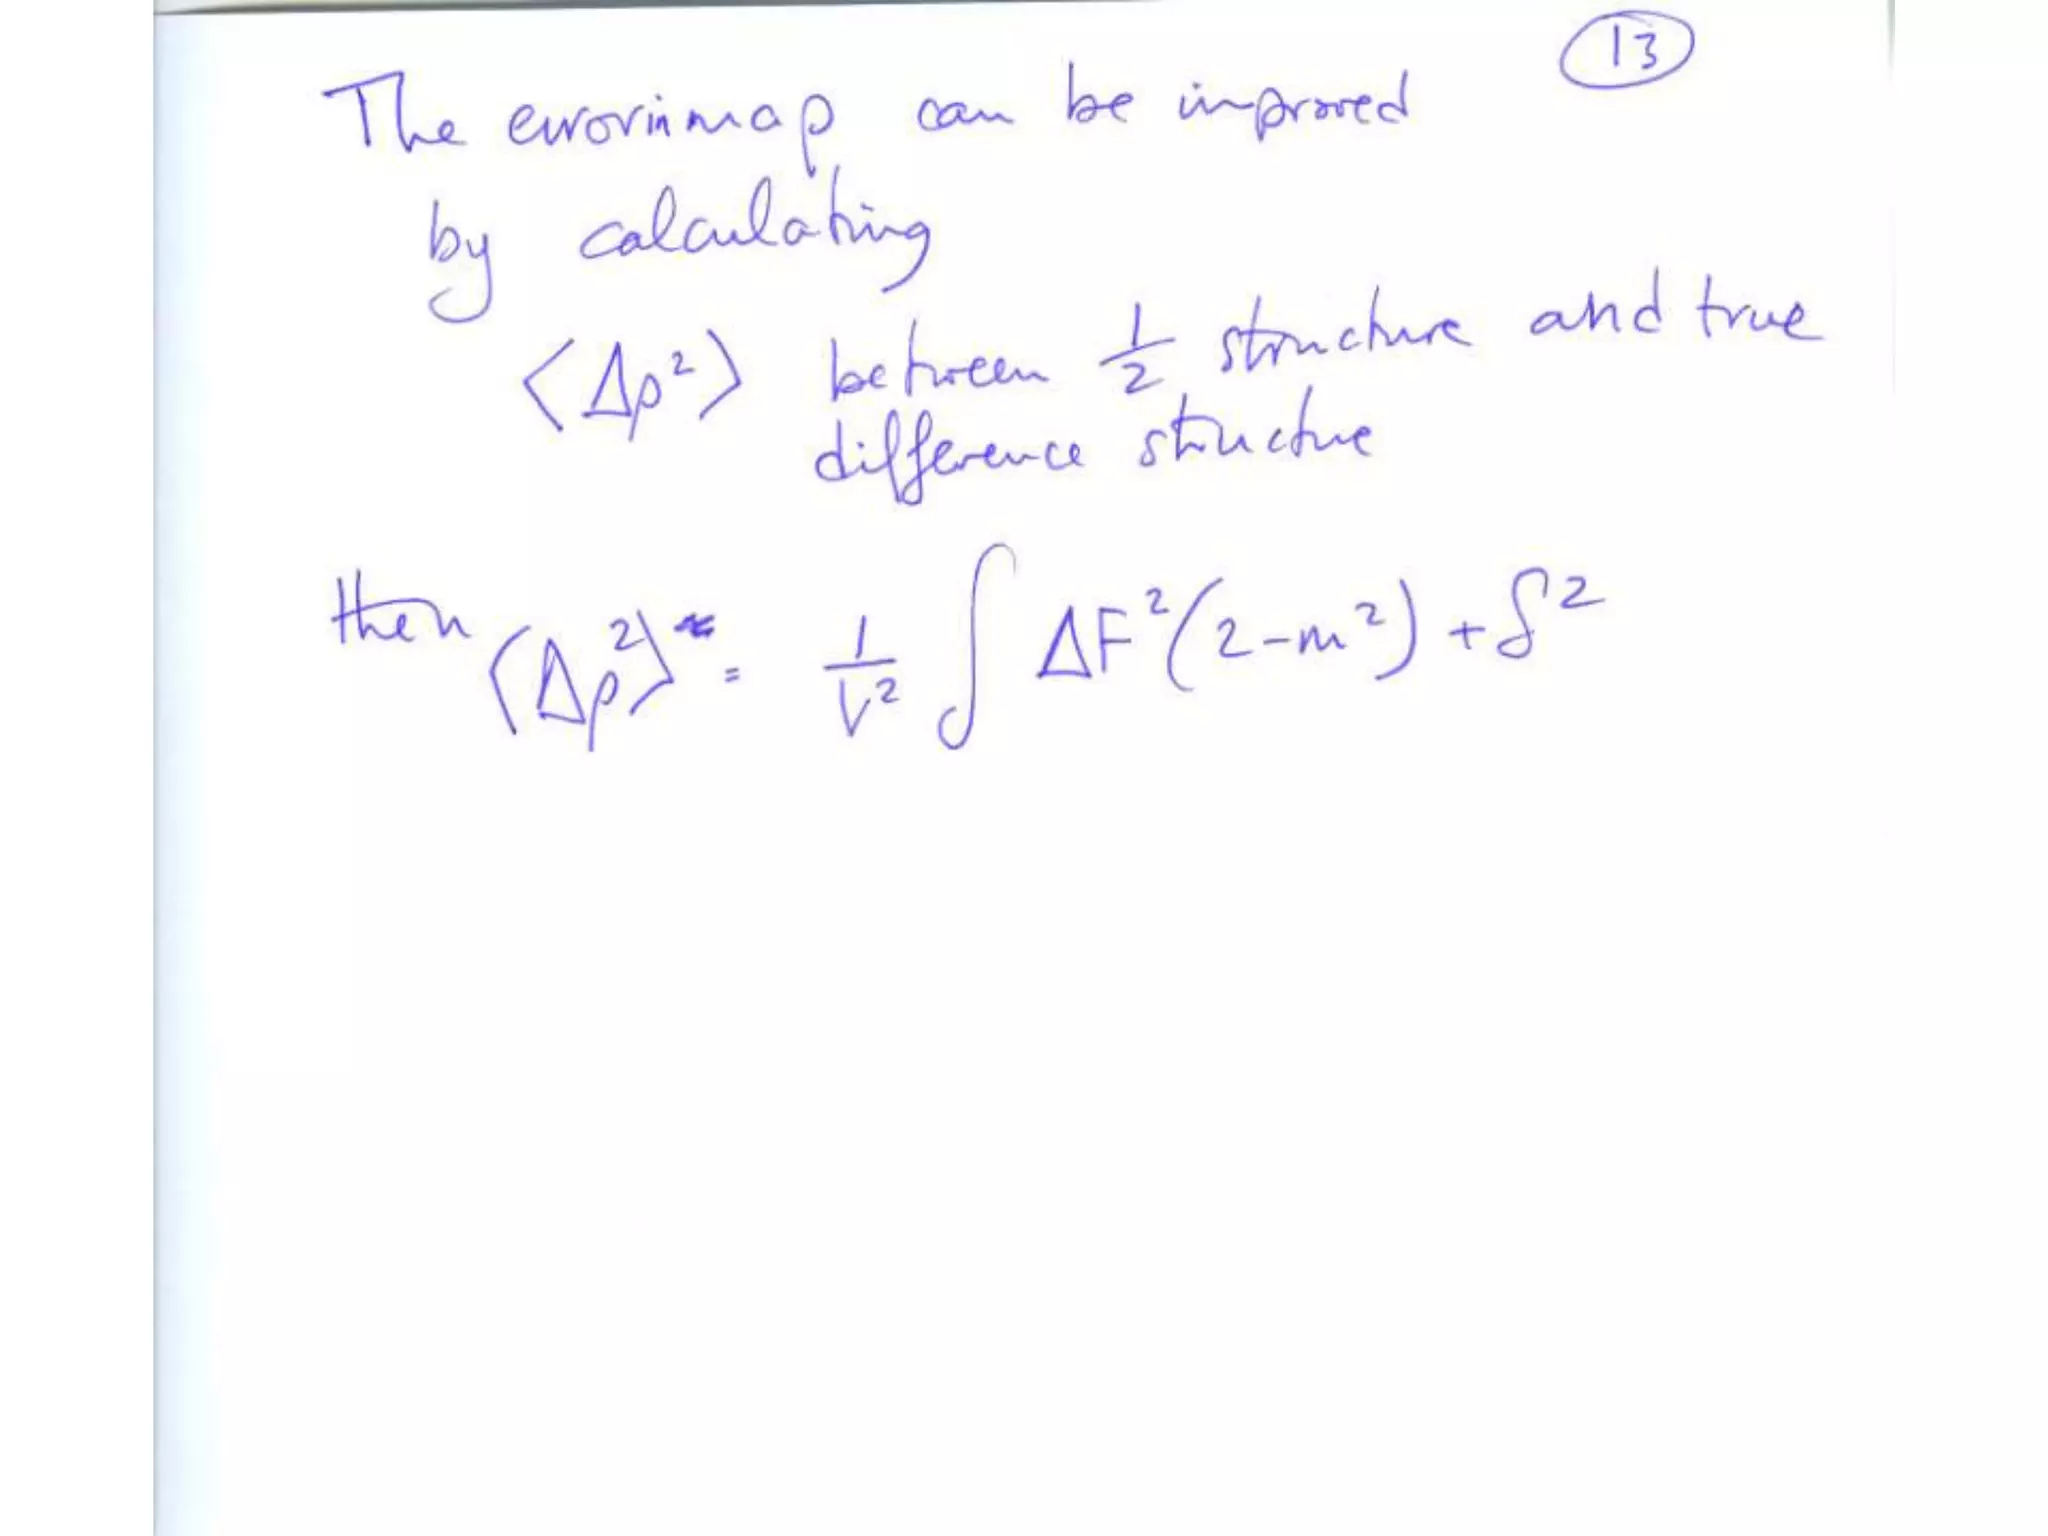 13
The error in map can be improved
by calculating
⟨Δρ²⟩ between 1/2 structure and true
difference structure
then ⟨Δρ²⟩ = 1/V² ∫ ΔF²(2-m²) + δ²